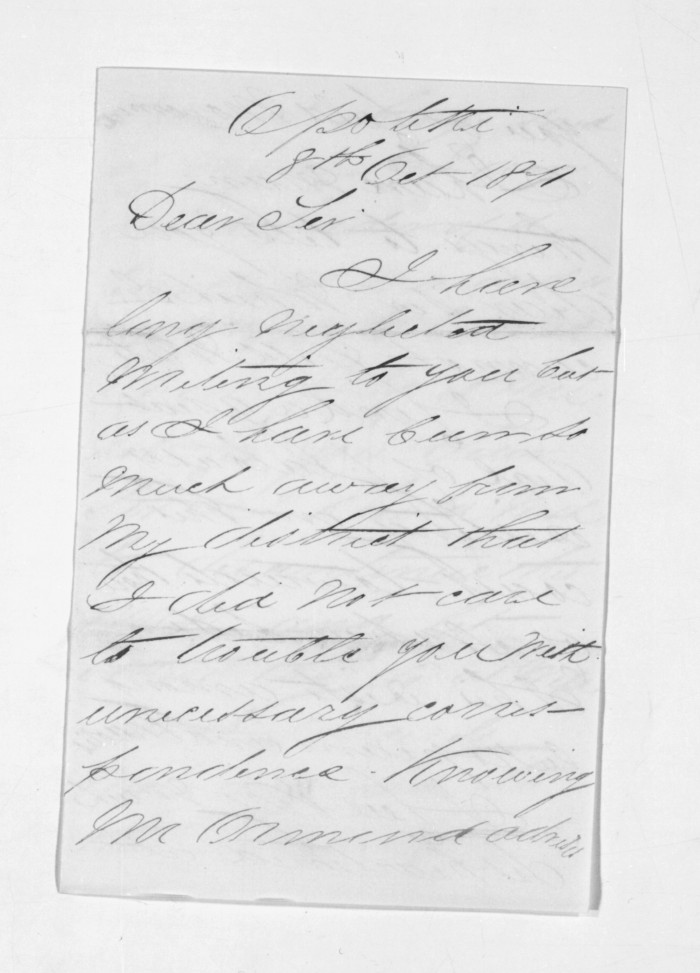 Opotiki
8th Oct 1871
Dear Sir
I have
long neglected
writing to you but
as I have been so
much away from
my district that
I did not care
to trouble you with
unecessary corres
pondence. Knowing
Mr Ormond advised